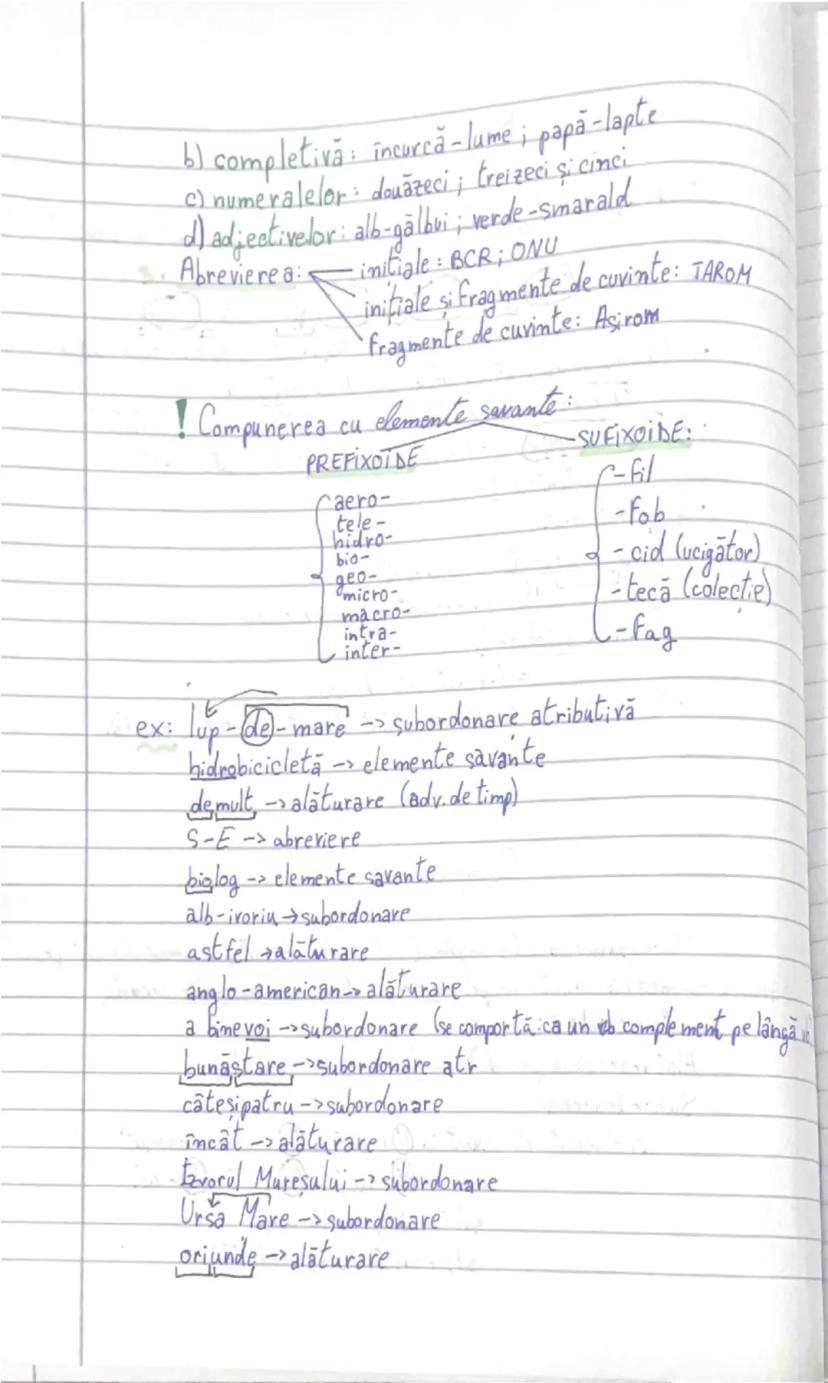 b) completivă: încurcă-lume; papă-lapte
c) numeralelor: douăzeci; treizeci și cinci
d) adjectivelor: alb-gălbui; verde-smarald
Abrevierea: inițiale: BCR; ONU
inițiale și fragmente de cuvinte: TAROM
fragmente de cuvinte: Asirom
! Compunerea cu elemente savante:
PREFIXOIDE
SUFIXOIDE:
aero-
tele-
hidro-
bio-
geo-
micro-
macro-
intra-
inter-
-fil
-fob
-cid (ucigător)
-tecă (colecție)
-fag
ex: lup-de-mare -> subordonare atributivă
hidrobicicletă -> elemente savante
demult -> alăturare (adv. de timp)
S-E -> abreviere
biolog -> elemente savante
alb-ivoriu -> subordonare
astfel -> alăturare
anglo-american -> alăturare
a binevoi -> subordonare (se comportă ca un complement pe lângă
bunăstare -> subordonare atr
câteșipatru -> subordonare
încât -> alăturare
Izvorul Mureșului -> subordonare
Ursa Mare -> subordonare
oriunde -> alăturare